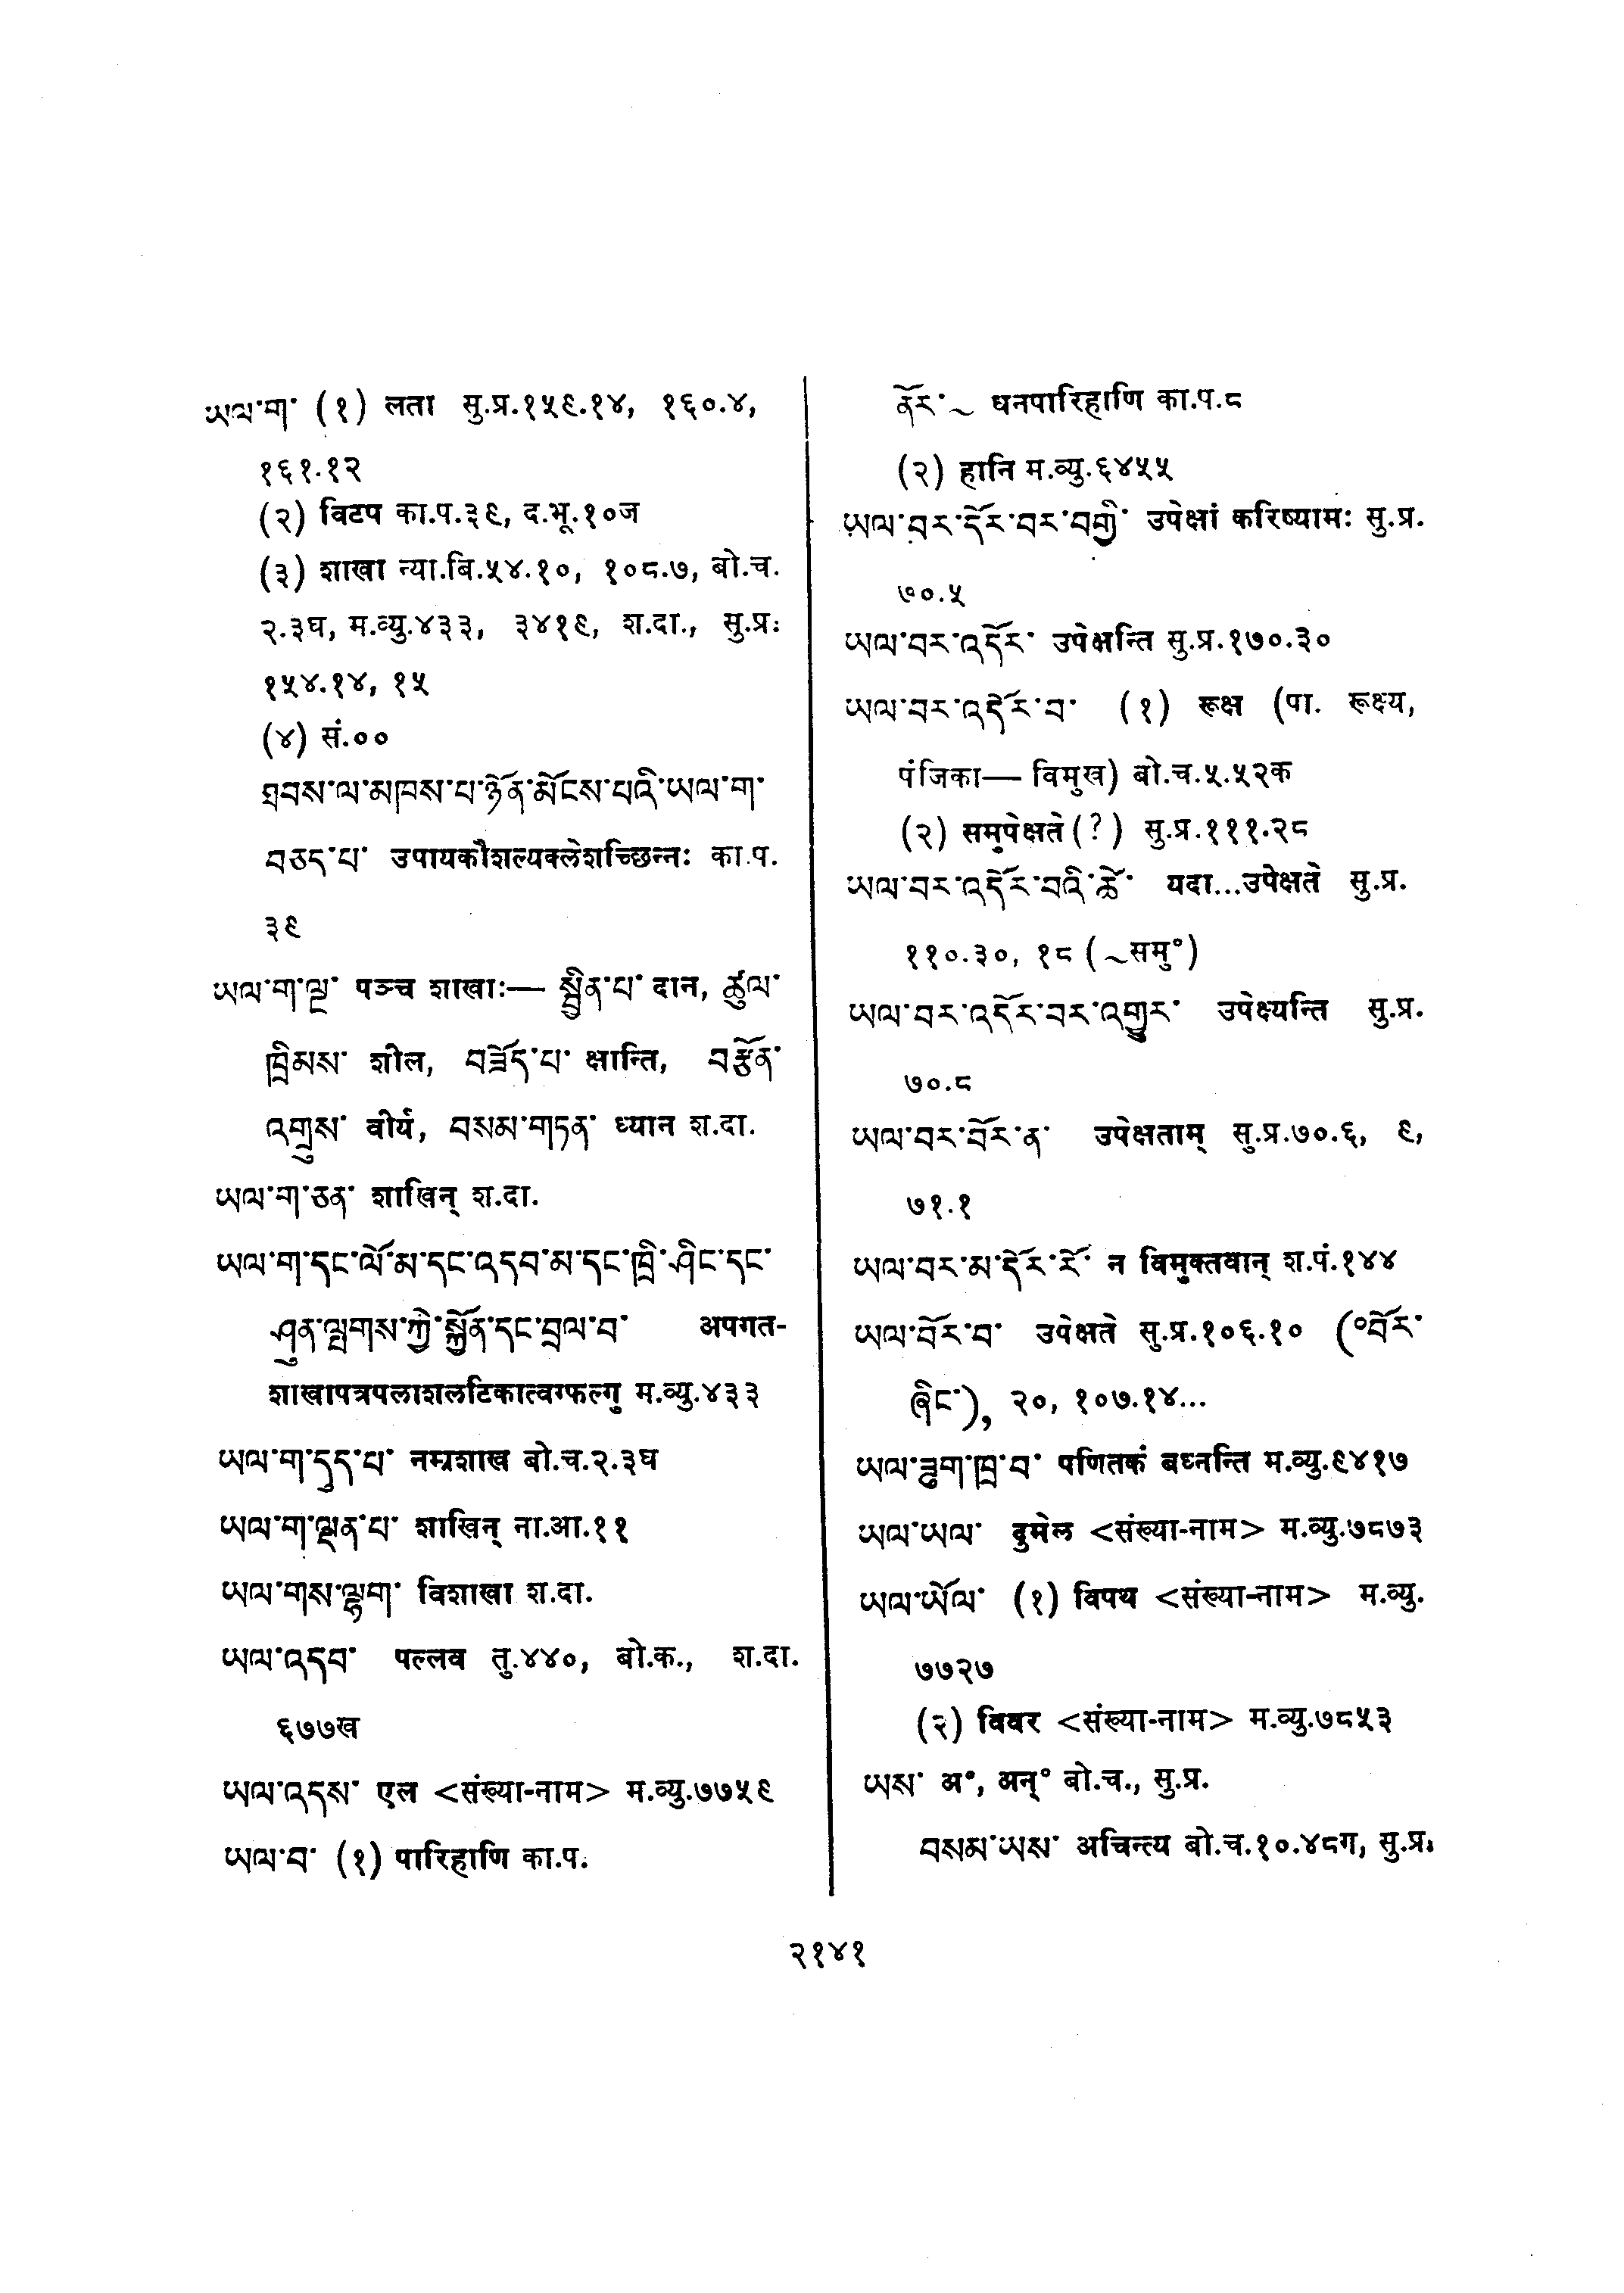 ཡལ་ག་ (१) लता सु.प्र.१५९.१४, १६०.४,
१६१.१२
(२) विटप का.प.३९, द.भू.१०ज
(३) शाखा न्या.बि.५४.१०, १०८.७, बो.च.
२.३घ, म.व्यु.४३३, ३४१९, श.दा., सु.प्र.
१५४.१४, १५
(४) सं.००
ཐབས་ལ་མཁས་པ་ཉོན་མོངས་པའི་ཡལ་ག་
བཅད་པ་ उपायकौशल्यक्लेशच्छिन्नः का.प.
३९
ཡལ་ག་ལྔ་ पञ्च शाखाः— སྦྱིན་པ་ दान, ཚུལ་
ཁྲིམས་ शील, བཟོད་པ་ क्षान्ति, བརྩོན་
འགྲུས་ वीर्य, བསམ་གཏན་ ध्यान श.दा.
ཡལ་ག་ཅན་ शाखिन् श.दा.
ཡལ་ག་དང་ལོ་མ་དང་འདབ་མ་དང་ཁྲི་ཤིང་དང་
ཤུན་ལྤགས་ཀྱི་སྐྱོན་དང་བྲལ་བ་ अपगत-
शाखापत्रपलाशलटिकात्वग्फल्गु म.व्यु.४३३
ཡལ་ག་དུད་པ་ नम्रशाख बो.च.२.३घ
ཡལ་ག་ལྡན་པ་ शाखिन् ना.आ.११
ཡལ་གས་ལྷག་ विशाखा श.दा.
ཡལ་འདབ་ पल्लव तु.४४०, बो.क., श.दा.
६७७ख
ཡལ་འདས་ एल <संख्या-नाम> म.व्यु.७७५९
ཡལ་བ་ (१) पारिहाणि का.प.
ནོར་~ धनपारिहाणि का.प.८
(२) हानि म.व्यु.६४५५
ཡལ་བར་དོར་བར་བགྱི་ उपेक्षां करिष्यामः सु.प्र.
७०.५
ཡལ་བར་འདོར་ उपेक्षन्ति सु.प्र.१७०.३०
ཡལ་བར་འདོར་བ་ (१) रूक्ष (पा. रूक्ष्य,
पंजिका— विमुख) बो.च.५.५२क
(२) समुपेक्षते (?) सु.प्र.१११.२८
ཡལ་བར་འདོར་བའི་ཚེ་ यदा...उपेक्षते सु.प्र.
११०.३०, १८ (~समु°)
ཡལ་བར་འདོར་བར་འགྱུར་ उपेक्ष्यन्ति सु.प्र.
७०.८
ཡལ་བར་བོར་ན་ उपेक्षताम् सु.प्र.७०.६, ९,
७१.१
ཡལ་བར་མ་དོར་རོ་ न विमुक्तवान् श.पं.१४४
ཡལ་བོར་བ་ उपेक्षते सु.प्र.१०६.१० (°བོར་
ཞིང་), २०, १०७.१४...
ཡལ་ཟུག་ཁྲ་བ་ पणितकं बध्नन्ति म.व्यु.९४१७
ཡལ་ཡལ་ दुमेल <संख्या-नाम> म.व्यु.७८७३
ཡལ་ཡོལ་ (१) विपथ <संख्या-नाम> म.व्यु.
७७२७
(२) विवर <संख्या-नाम> म.व्यु.७८५३
ཡས་ अ°, अन्° बो.च., सु.प्र.
བསམ་ཡས་ अचिन्त्य बो.च.१०.४८ग, सु.प्र.
२१४१